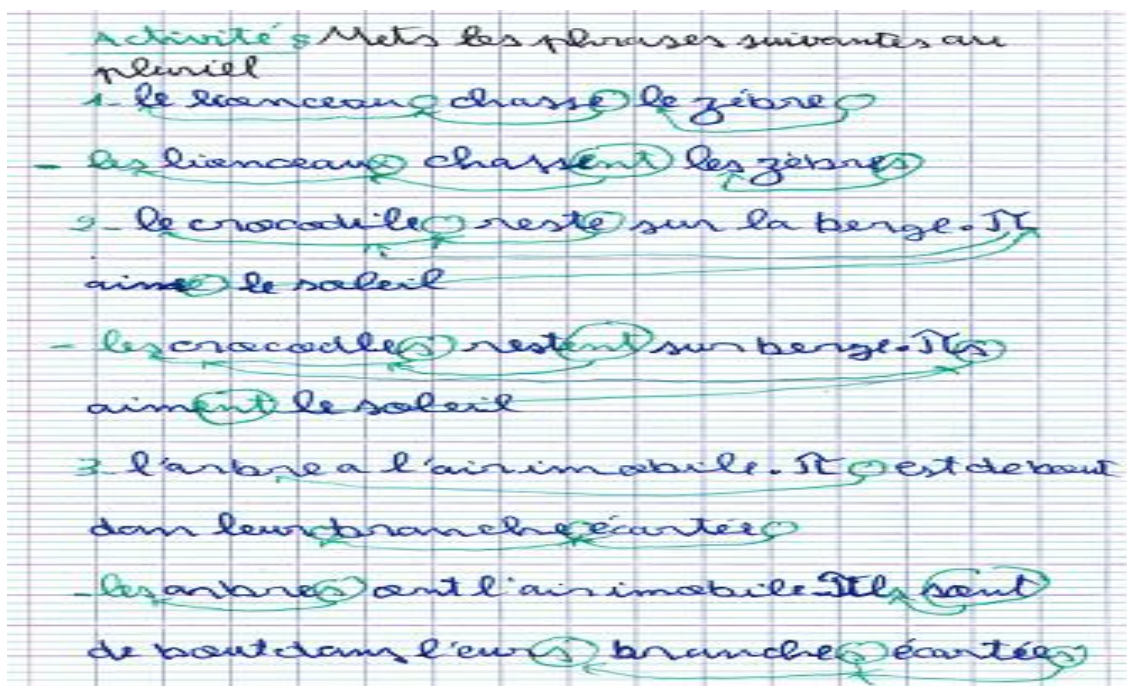 Activité : Mets les phrases suivantes au
pluriel
1- le lionceau chasse le zèbre
- les lionceaux chassent les zèbres
2- le crocodile reste sur la berge. Il
aime le soleil
- les crocodiles restent sur berge. Ils
aiment le soleil
3- l'arbre a l'air imobile. Il est debout
dans leur branche écartée
- les arbres ont l'air imobile. Ils sont
de bout dans l'eurs branches écartées